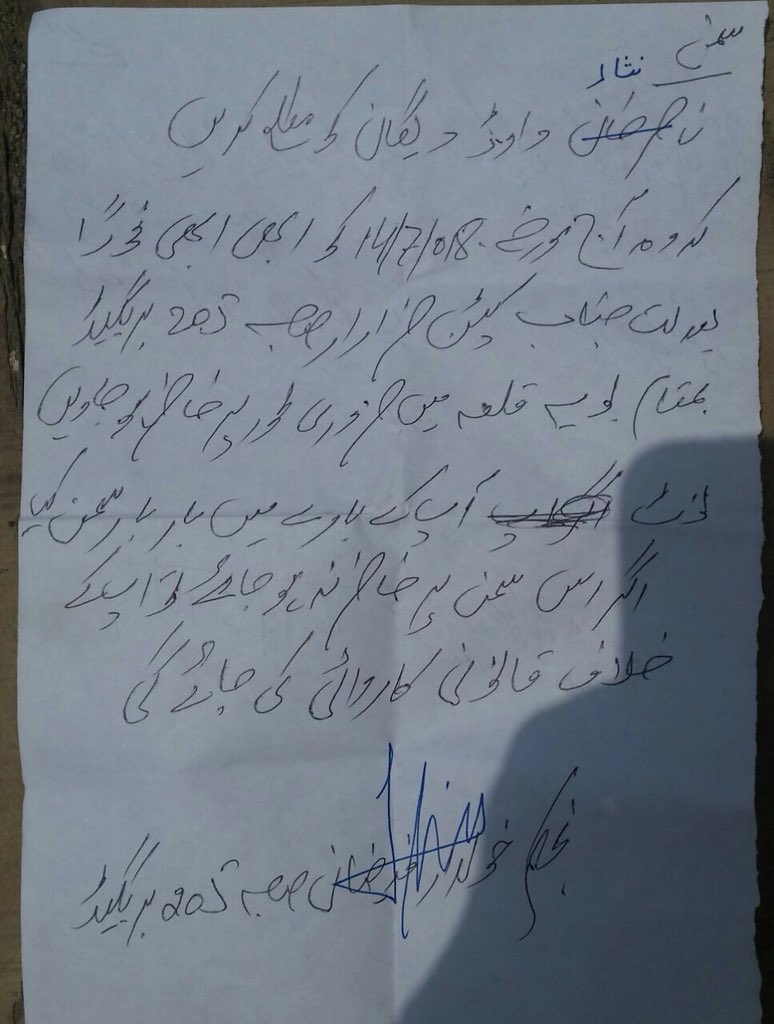 سمن
نثار
و دیگان کو مطلع کریں
کہ وہ آج مورخہ 14/7/018 کو ابھی ابھی فوراً
بعدلت جناب کیپٹن صاحب 205 بریگیڈ
بمقام بویہ قلعہ میں ضروری طور پر حاضر ہو جاویں
نوٹ آپ کے بارے میں بار بار سمن کیا
اگر اس سمن پر حاضر نہ ہو جائے تو اپ کے
خلاف قانونی کاروائی کی جائے گی
بحکم صاحب 205 بریگیڈ